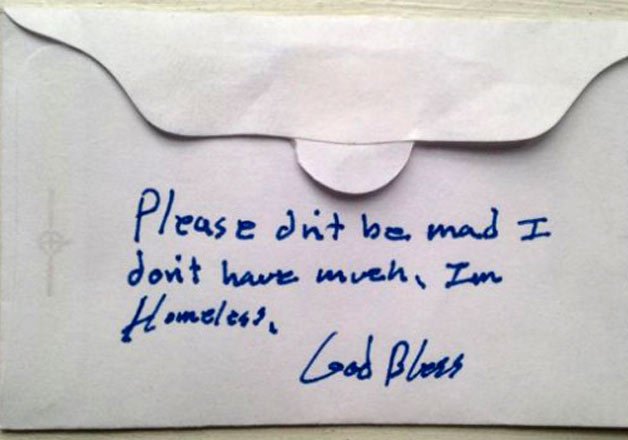 Please dn't be mad I
don't have much. Im
Homeless.
God Bless